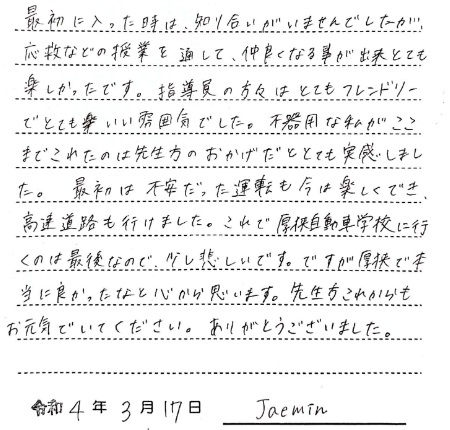 最初に入った時は、知り合いがいませんでしたが、
応救などの授業を通して、仲良くなる事が出来とても
楽しかったです。指導員の方々はとてもフレンドリー
でとても楽いい雰囲気でした。不器用な私がここ
までこれたのは先生方のおかげだととても実感しまし
た。最初は不安だった運転も今は楽しくでき、
高速道路も行けました。これで厚狭自動車学校に行
くのは最後なので、少し悲しいです。ですが厚狭で本
当に良かったなと心から思います。先生方これからも
お元気でいてください。ありがとうございました。
令和4年3月17日 Jaemin